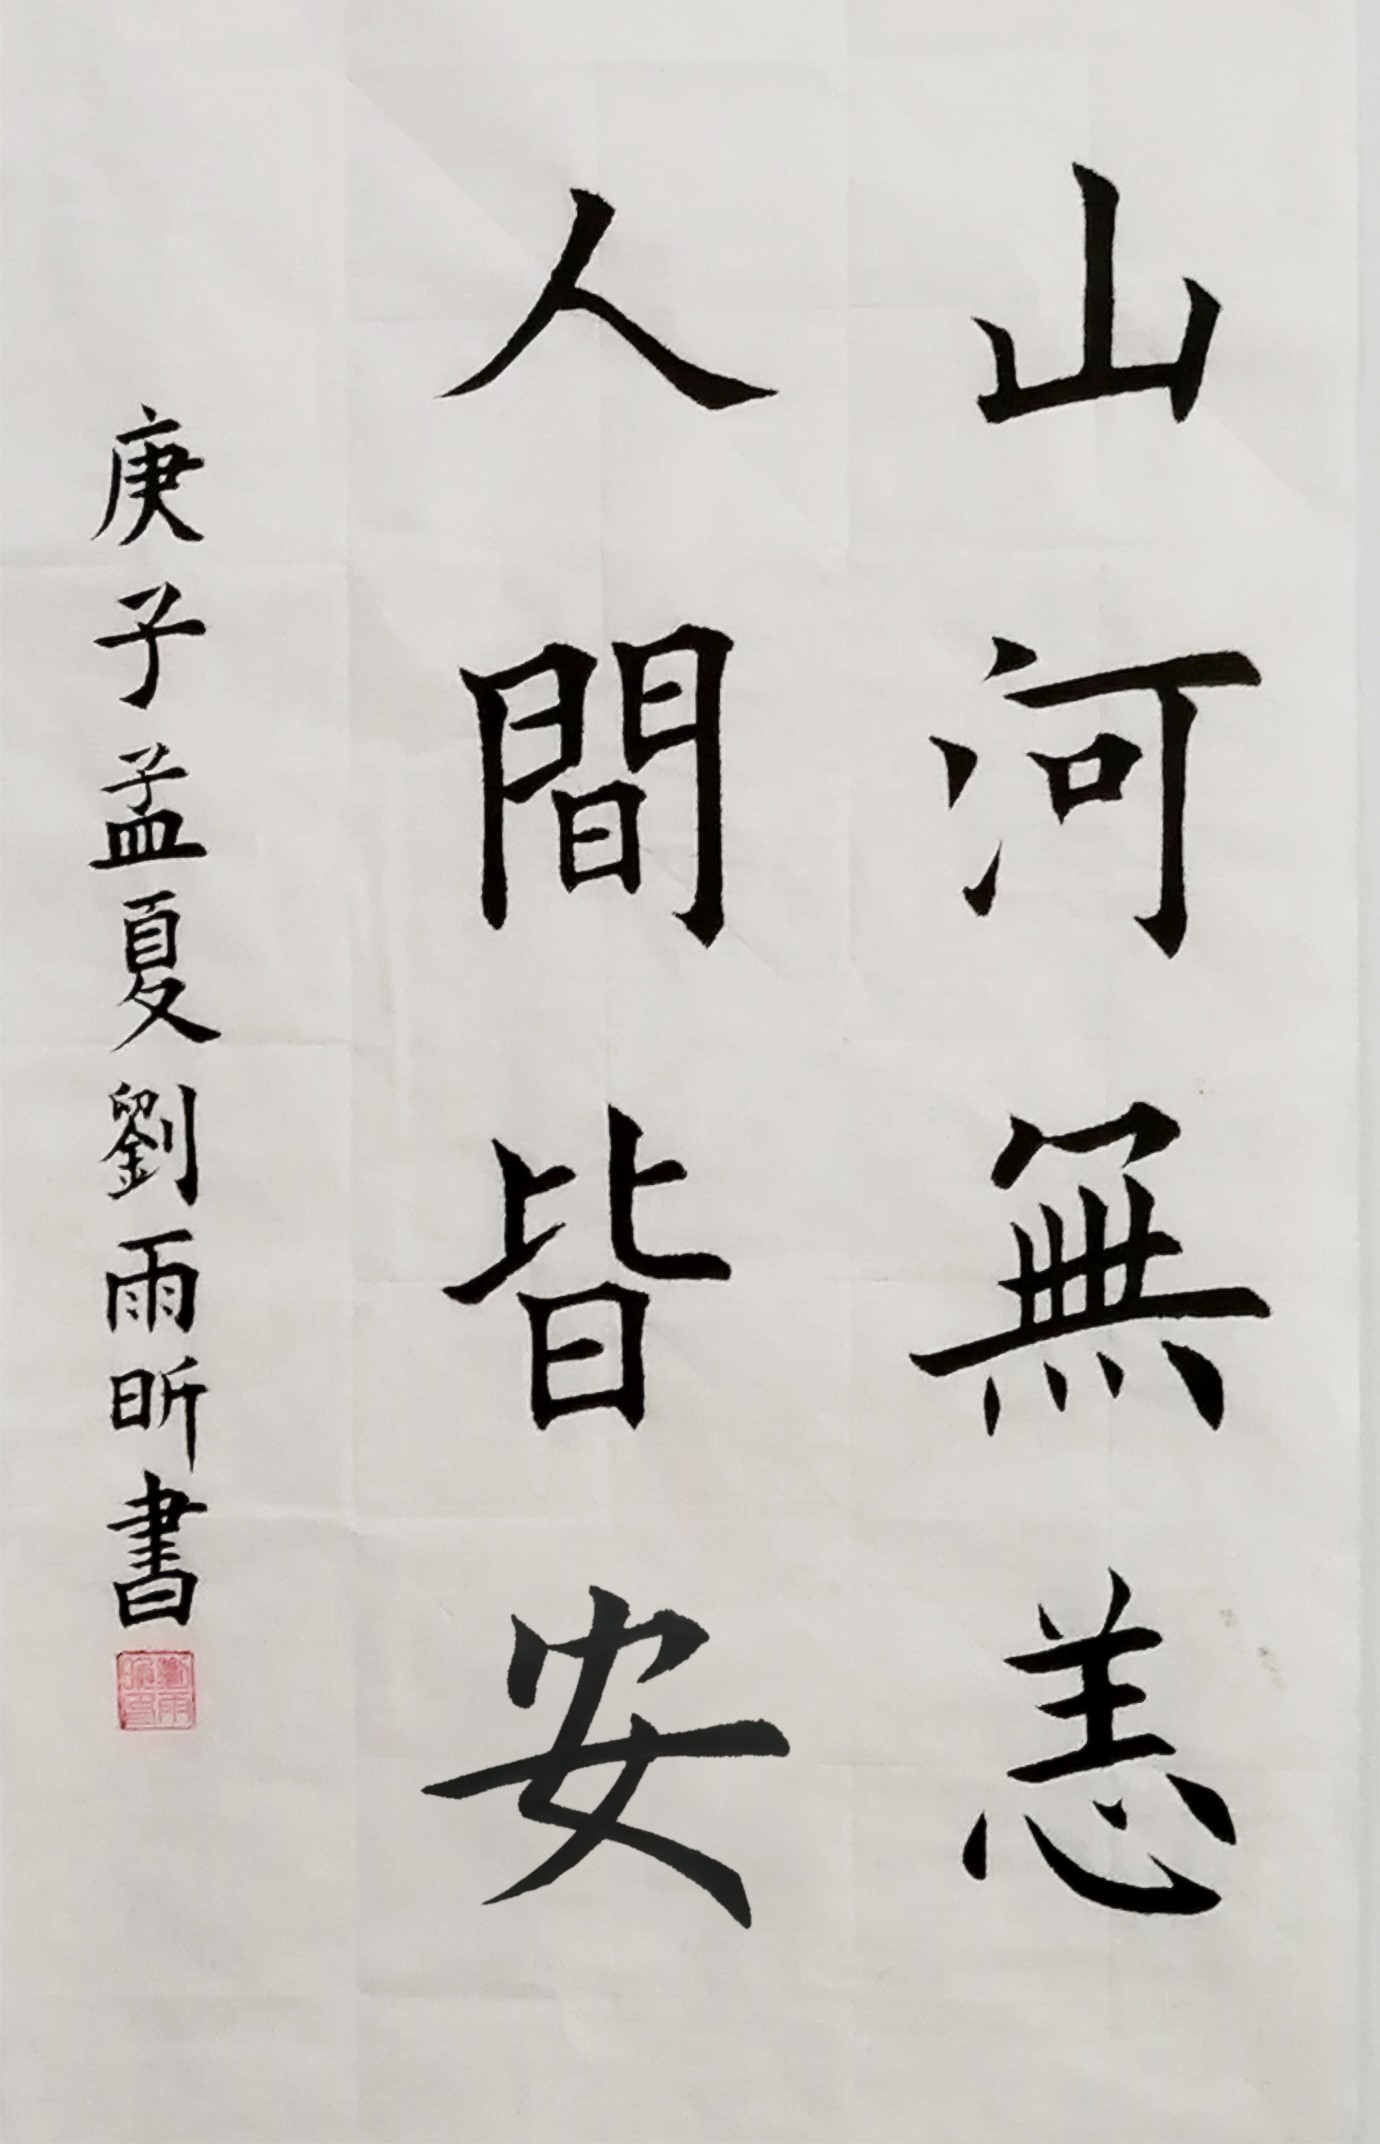 山河無恙
人間皆安
庚子孟夏劉雨昕書